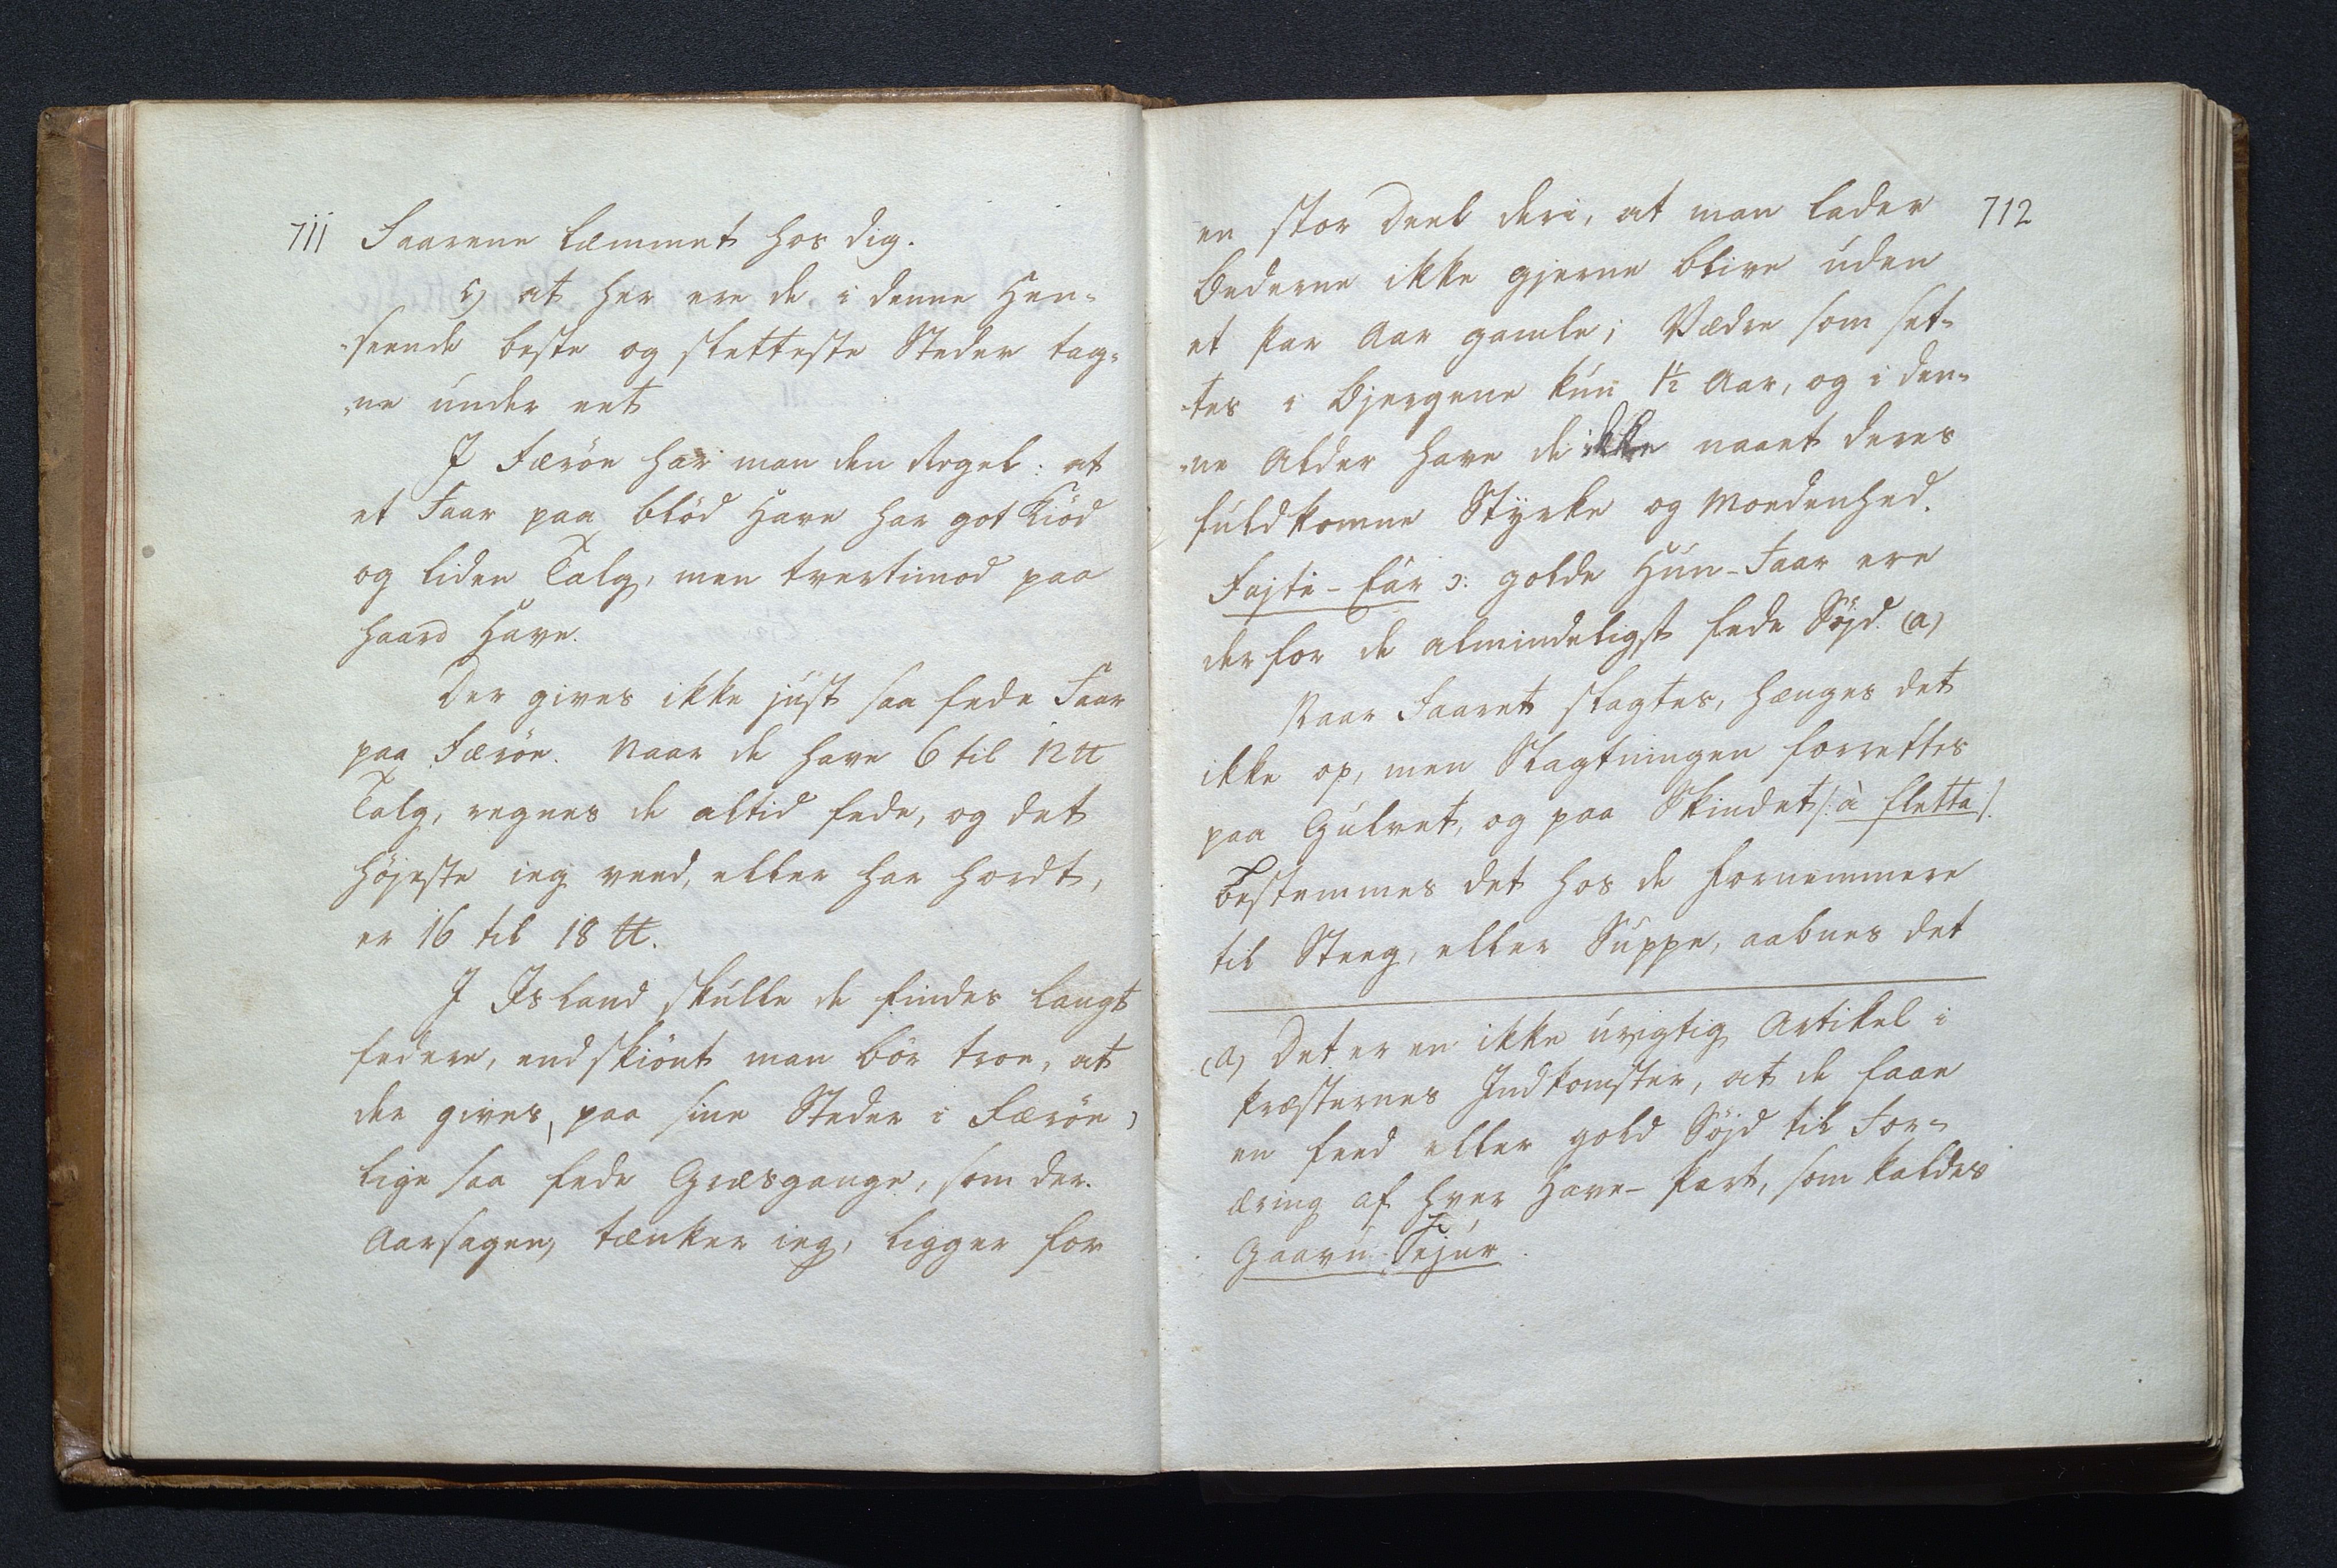 711
Faarene læmmet hos dig.
c) at her ere de i denne Hen-
-seende beste og sletteste Steder tag-
-ne under eet
I Færöe har man den Regel: at
et Faar paa blöd Have har got Kiöd
og liden Talg, men tvertimod paa
haard Have.
Der gives ikke just saa fede Faar
paa Færöe. Naar de have 6 til 12 ℔
Talg, regnes de altid fede, og det
höjeste ieg veed, eller har hordt,
er 16 til 18 ℔.
I Island skulle de findes langt
federe, endskiönt man bör troe, at
der gives, paa sine Steder i Færöe,
lige saa fede Græsgange, som der.
Aarsagen, tænker ieg, ligger for
712
en stor Deel deri, at man lader
Bederne ikke gjerne blive uden
et Par Aar gamle; Vædre som set-
-tes i Bjergene kun 1½ Aar, og i den-
-ne Alder have de ikke naaet deres
fuldkomne Styrke og Moedenhed.
Fajti-fär ɔ: golde Hun-Faar ere
derfor de almindeligst fede Söjd. (a)
Naar Faaret slagtes, hænges det
ikke op, men Slagtningen forrettes
paa Gulvet, og paa Skindet /: à fletta /.
Bestemmes det hos de fornemmere
til Steeg, eller Suppe, aabnes det
(a) Det er en ikke uvigtig Artikel i
Præsternes Indkomster, at de faae
en feed eller gold Söjd til For-
æring af hver Have-Part, som kaldes
Gaavu-Sejur.